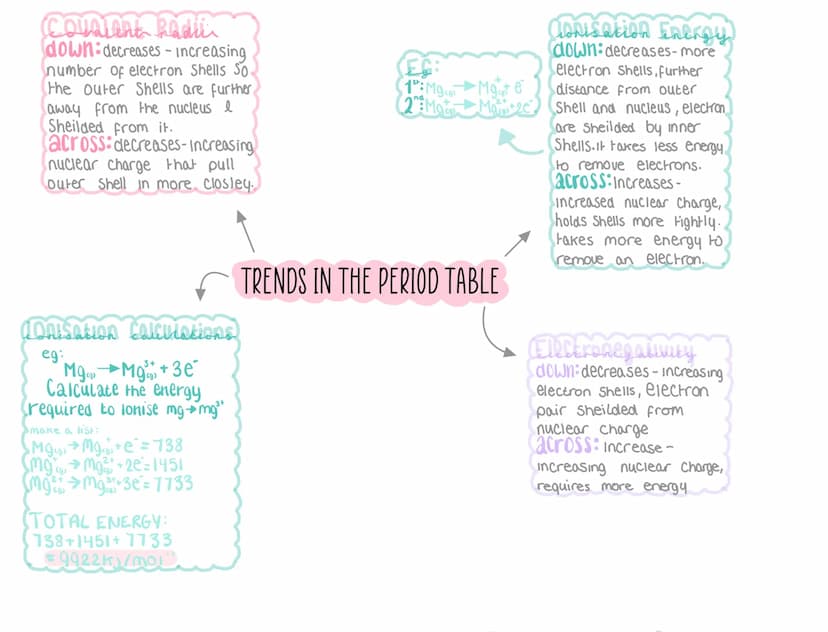 Covalent Radii
covalent radii
down: decreases - increasing
number of electron shells so
the outer shells are further
away from the nucleus &
sheilded from it.
across: decreases - increasing
nuclear charge that pull
outer shell in more closley.
EG:
eg:
1st: Mg(g) → Mg+(g) + e-
2nd: Mg+(g) → Mg2+(g) + 2e-
Ionisation Energy
ionisation energy
down: decreases - more
electron shells, further
distance from outer
shell and nucleus, electron
are sheilded by inner
shells. it takes less energy
to remove electrons.
across: increases -
increased nuclear charge,
holds shells more tightly.
takes more energy to
remove an electron.
TRENDS IN THE PERIOD TABLE
Ionisation Calculations
ionisation calculations
eg:
Mg(g) → Mg3+(g) + 3e-
Calculate the energy
required to ionise mg → mg3+
make a list:
Mg(g) → Mg+(g) + e- = 738
Mg+(g) → Mg2+(g) + 2e- = 1451
Mg2+(g) → Mg3+(g) + 3e- = 7733
TOTAL ENERGY:
738 + 1451 + 7733
= 9922kj/mol-1
Electronegativity
electronegativity
down: decreases - increasing
electron shells, electron
pair sheilded from
nuclear charge
across: increase -
increasing nuclear charge,
requires more energy